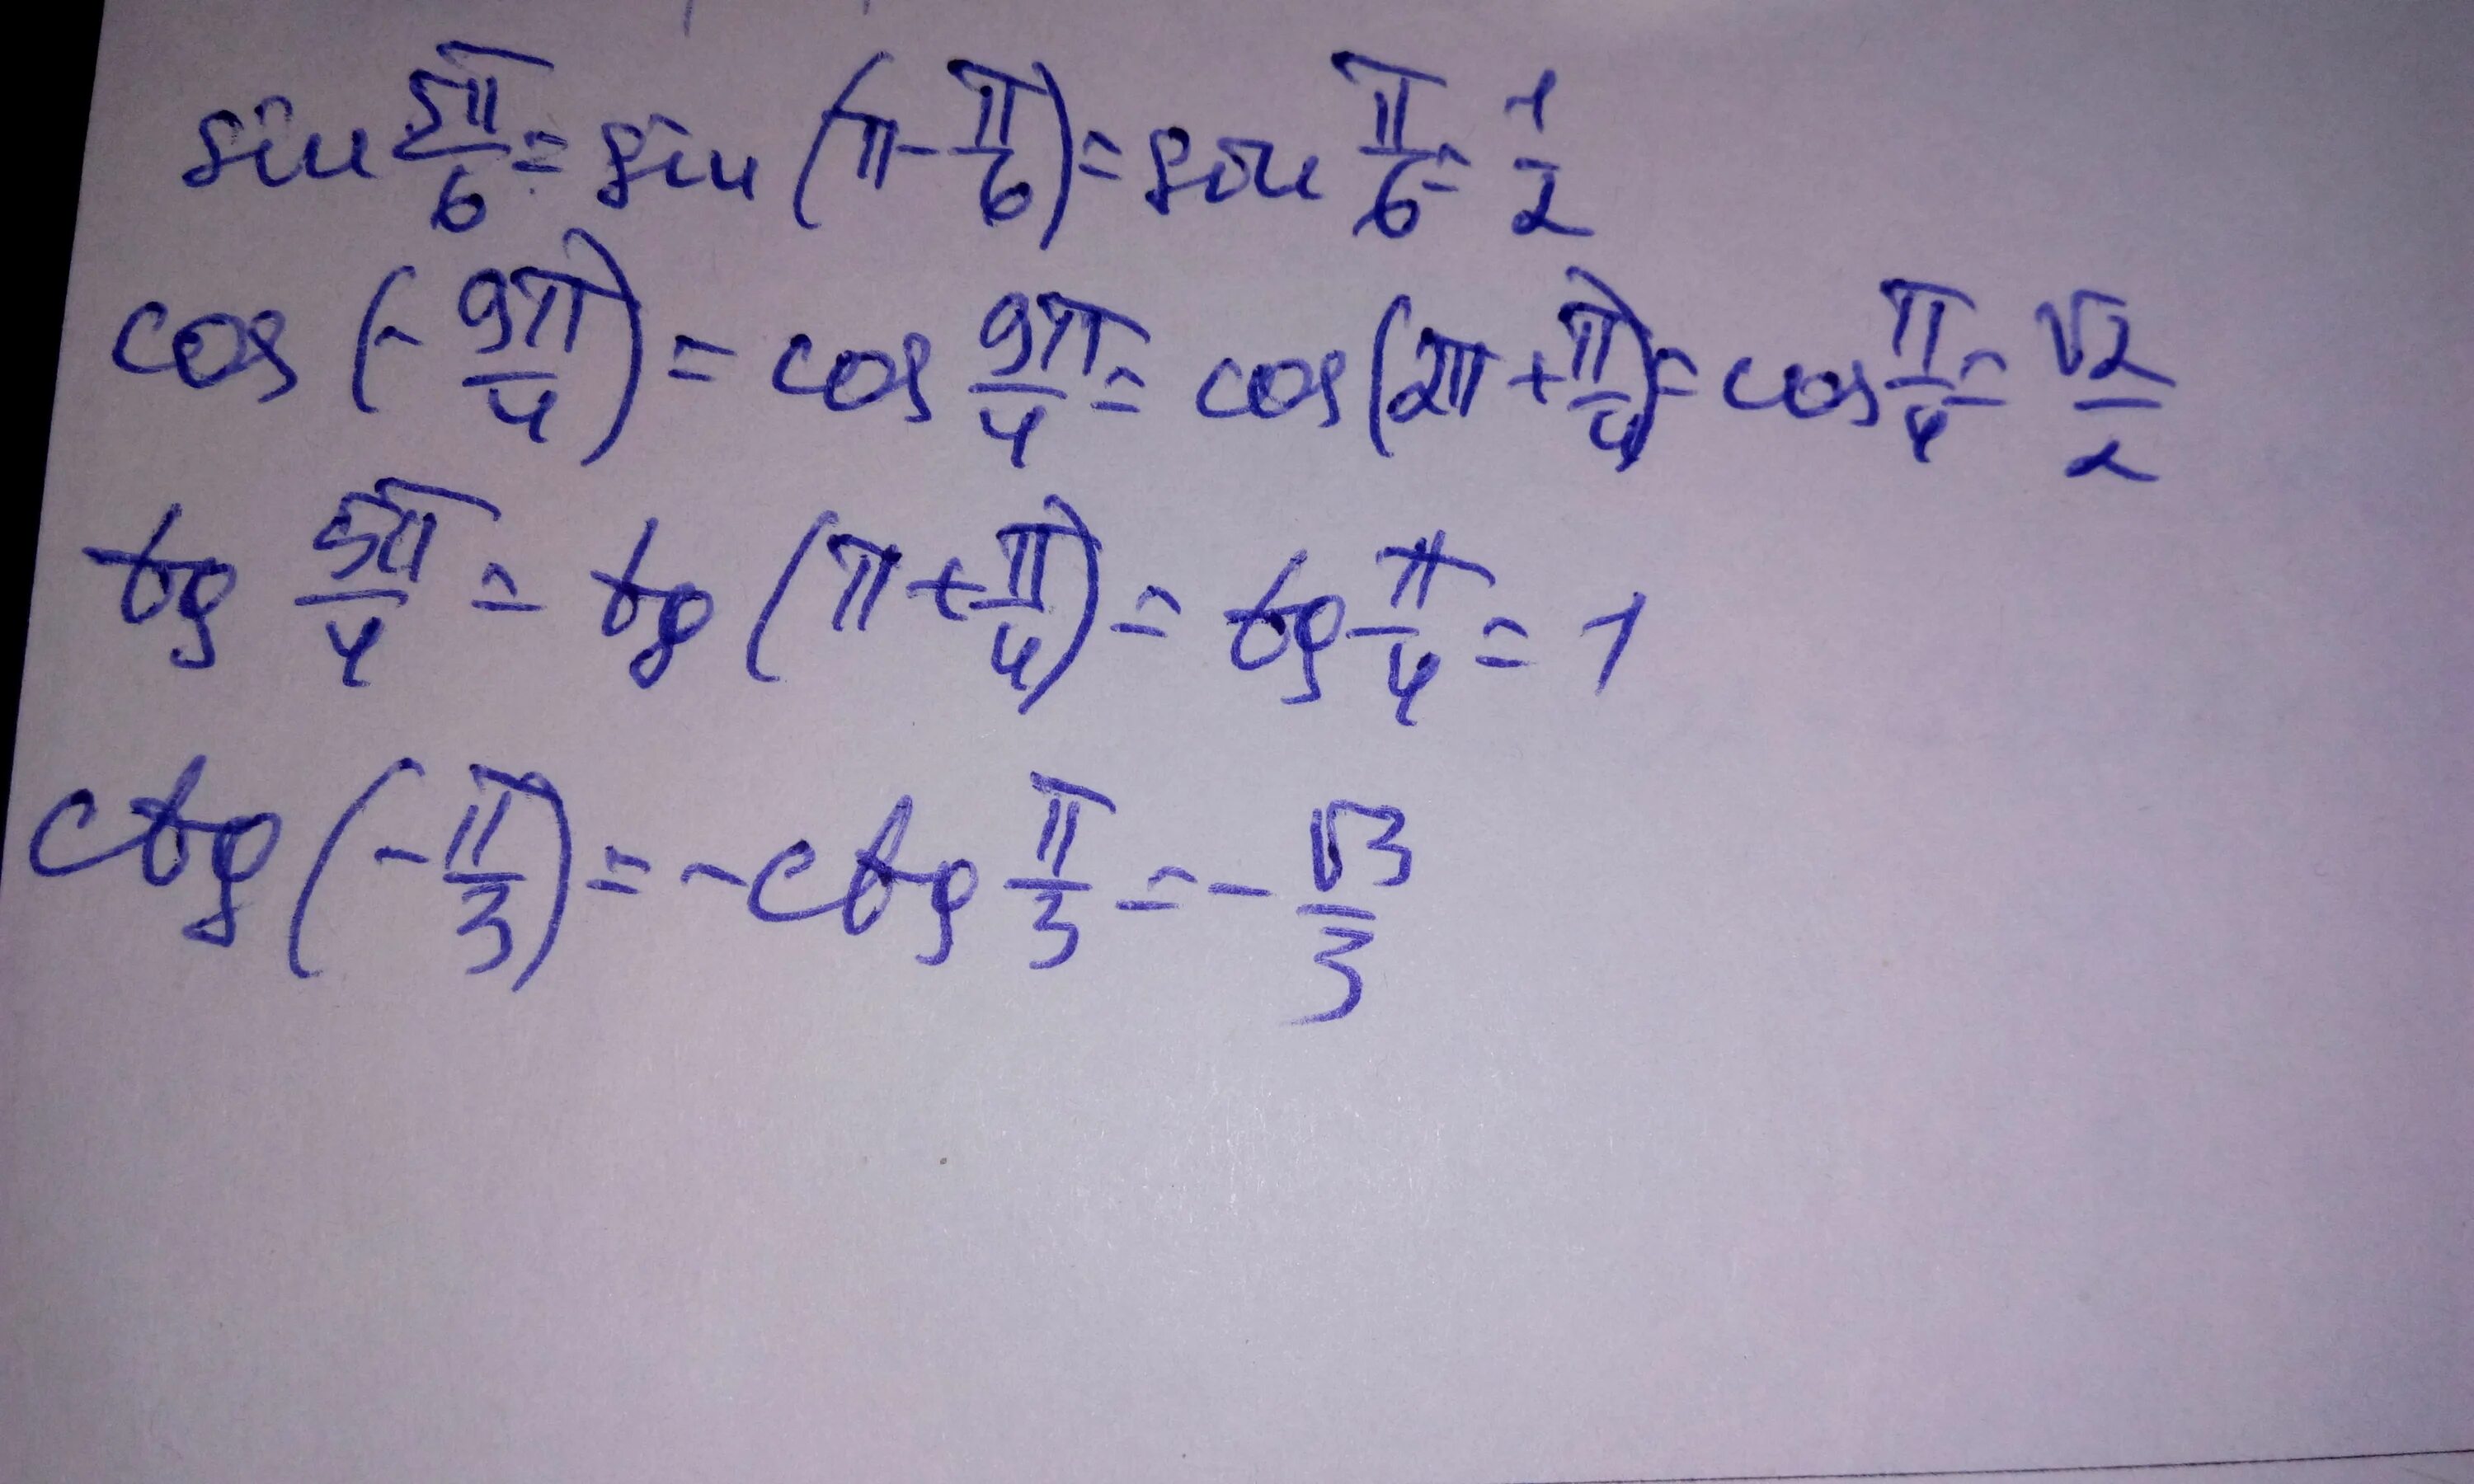 sin 5π/6 = sin (π - π/6) = sin π/6 = 1/2
cos (- 9π/4) = cos 9π/4 = cos (2π + π/4) = cos π/4 = √2/2
tg 5π/4 = tg (π + π/4) = tg π/4 = 1
ctg (- π/3) = - ctg π/3 = - √3/3